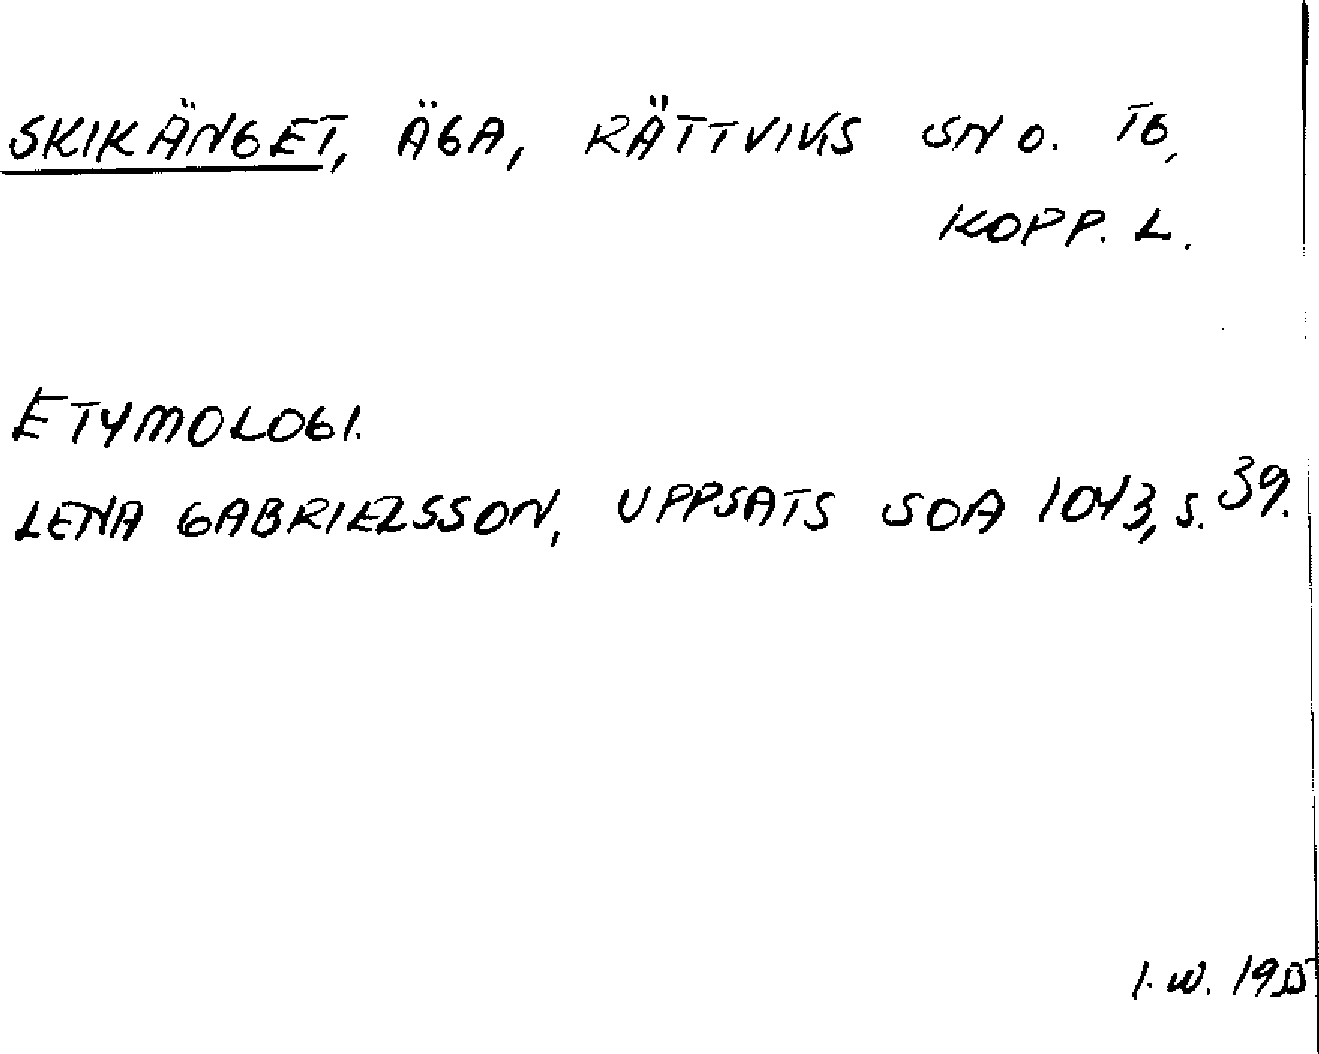 SKIKÄNGET, ÄGA, RÄTTVIKS SN O. TG,
KOPP. L.
ETYMOLOGI.
LENA GABRIELSSON, UPPSATS SOA 1043, S. 39.
I. W.